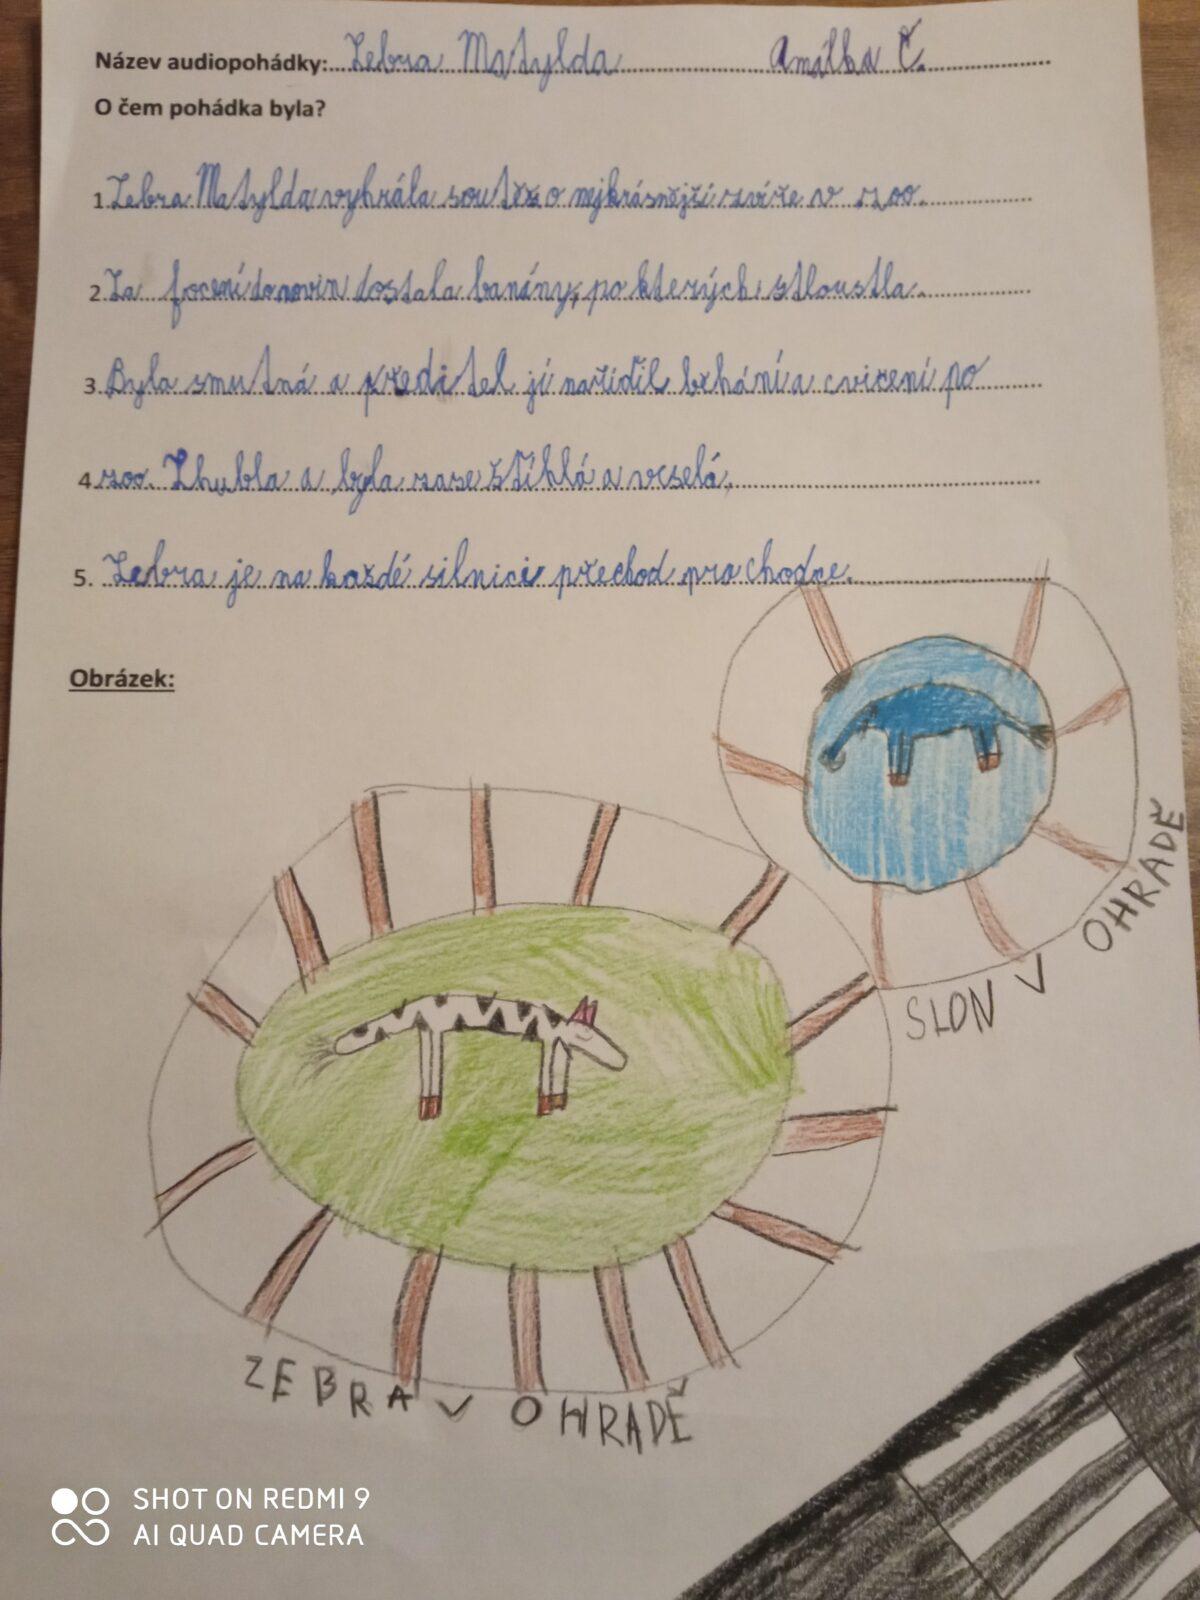 Název audiopohádky: Zebra Matylda Amálka Č.
O čem pohádka byla?
1. Zebra Matylda vyhrála soutěž o nejkrásnější zvíře v zoo.
2. Za focení do novin dostala banány, po kterých ztloustla.
3. Byla smutná a ředitel jí nařídil běhání a cvičení po
4. zoo. Zhubla a byla zase štíhlá a veselá.
5. Zebra je na každé silnici přechod pro chodce.
Obrázek:
SLON V OHRADĚ
ZEBRA V OHRADĚ
SHOT ON REDMI 9
AI QUAD CAMERA